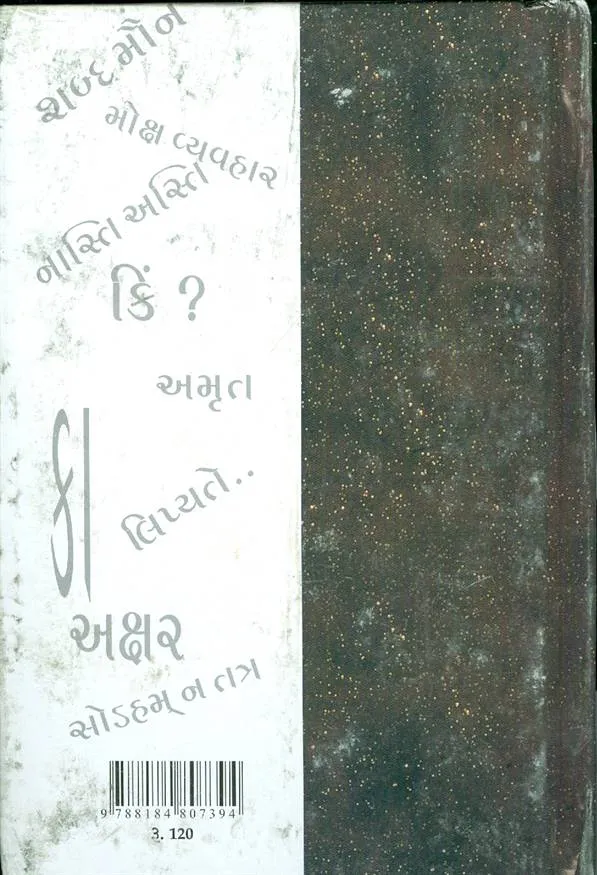 શબ્દ મૌન
મોક્ષ વ્યવહાર
નાસ્તિ અસ્તિ
કિં ?
અમૃત
લિપ્યતે..
કા
અક્ષર
સોઽહમ્ ન તત્ર
9 788184 807394
રૂ. 120